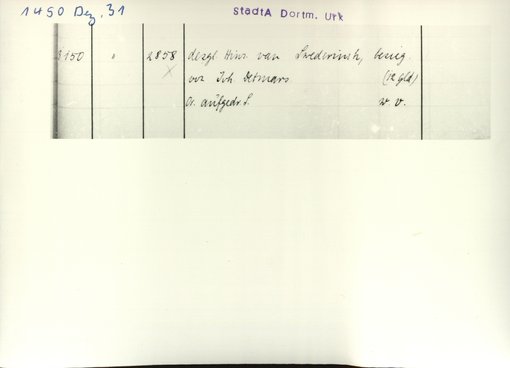 1450 Dez. 31
StadtA Dortm. Urk
3150 " 2858 desgl. Hinr. van Swederinck, besieg.
vor Joh Detmars (12 gld)
Or. aufgedr. S. w. v.